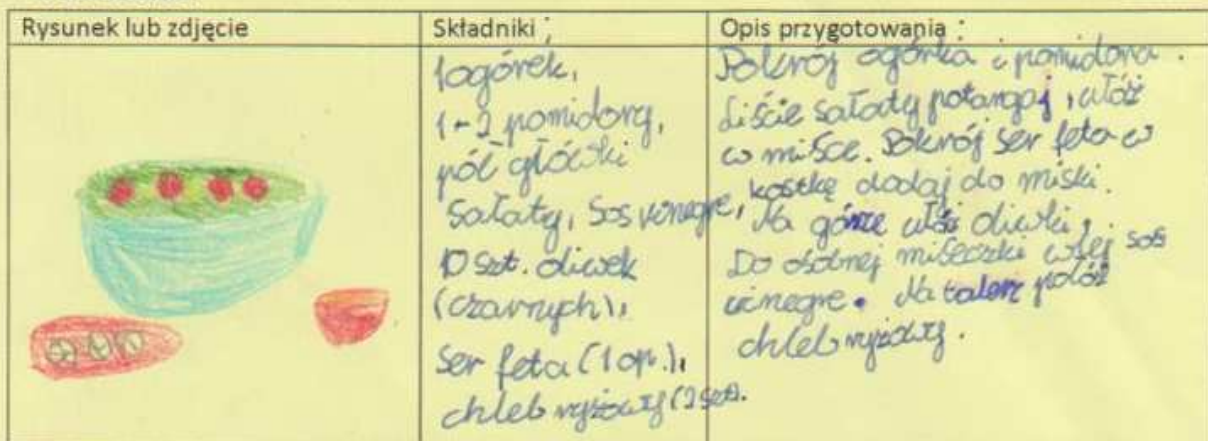 Rysunek lub zdjęcie
Składniki :
1 ogórek,
1-2 pomidory,
pół główki
sałaty, sos winegre,
10 szt. oliwek
(czarnych),
ser feta (1 op.),
chleb ryżowy (2 szt).
Opis przygotowania :
Pokrój ogórka i pomidora.
Liście sałaty potargaj, włóż
w misce. Pokrój ser feta w
kostkę dodaj do miski.
Na górze ułóż oliwki,
Do osobnej miseczki wlej sos
winegre. Na talerz połóż
chleb ryżowy.